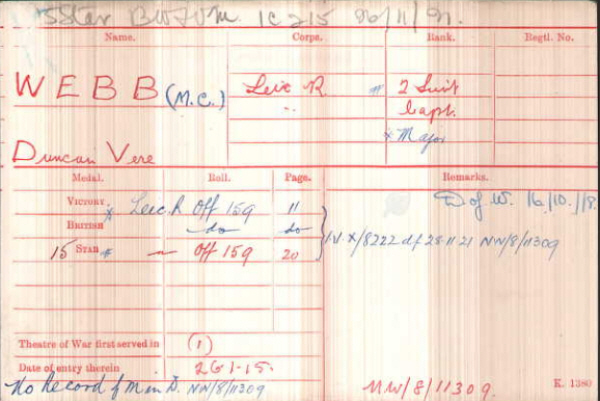 5 Star BWT VM. IC 215
Name. Corps. Rank. Regtl. No.
WEBB (M.C.) Leic R. " 2 Liut
" Capt.
* Major
Duncan Vere
Medal. Roll. Page. Remarks.
Victory * Leic. R Off 159 11 D of W. 16/10/18.
British do do
IV X/8222 df 28-11 21 NW/8/11309
15 Star * — Off 159 20
Theatre of War first served in (1)
Date of entry therein 26 1-15.
No Record of M in D. NW/8/11309 NW/8/11309. K. 1380